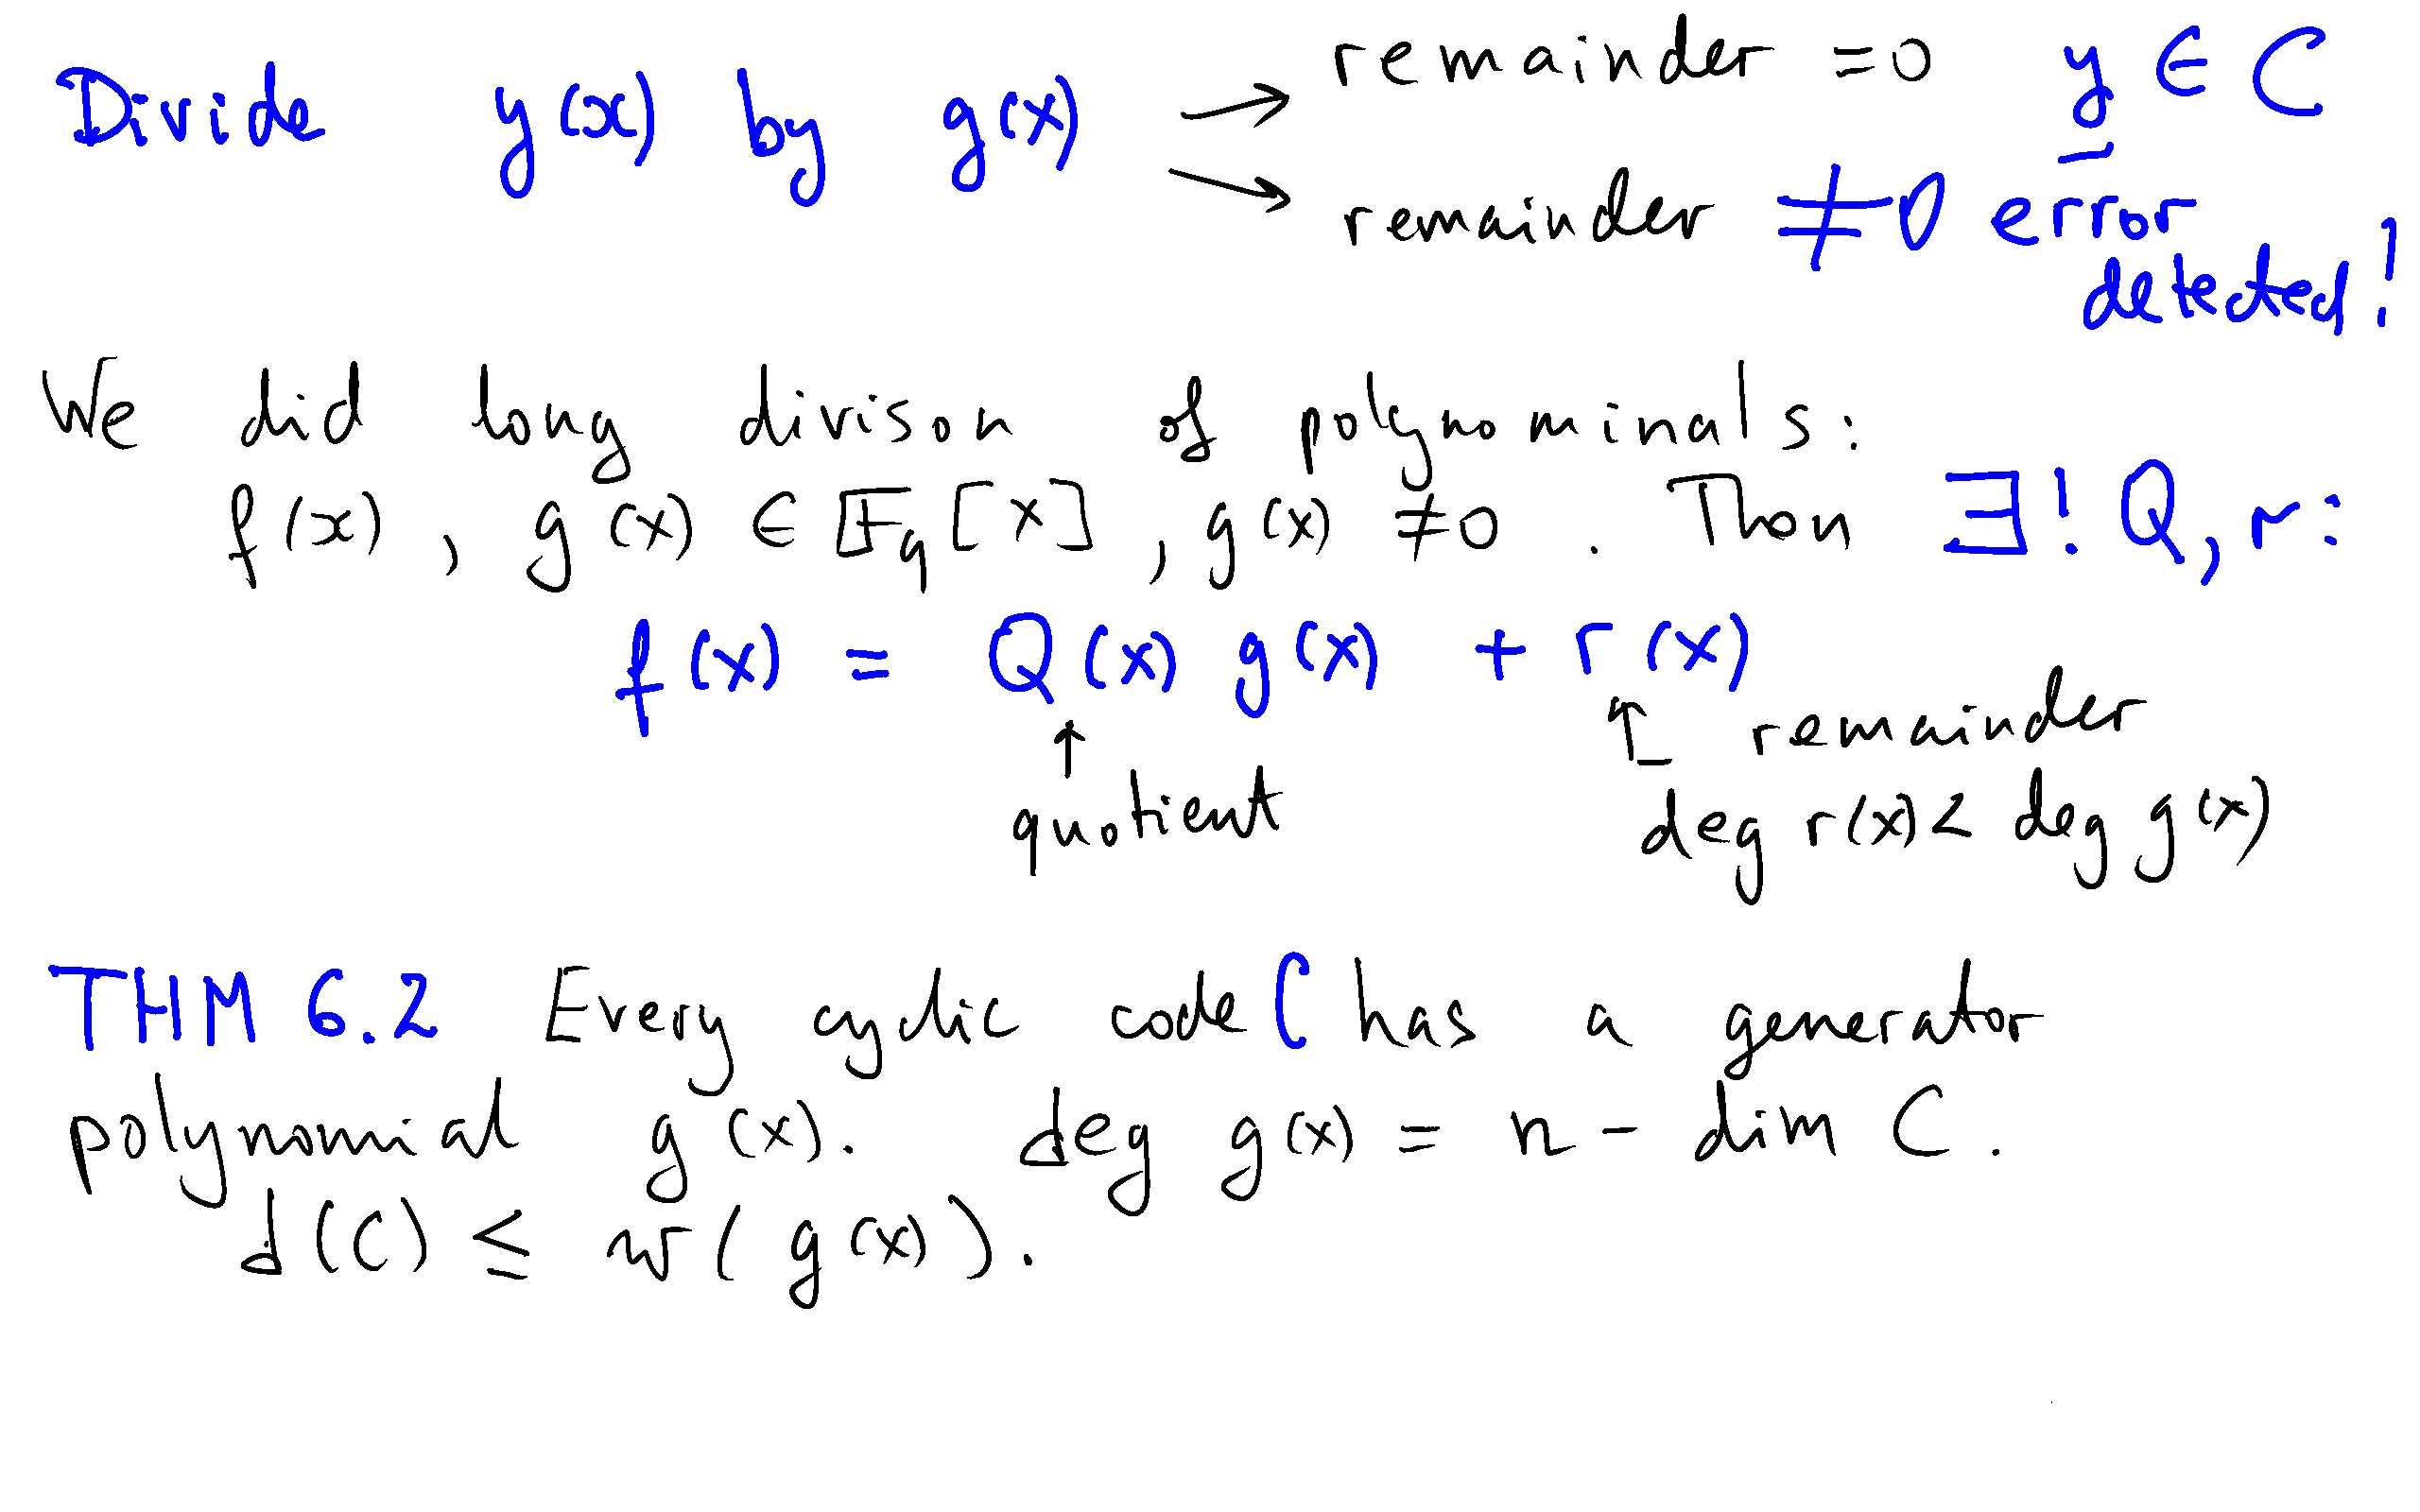 Divide y(x) by g(x) → remainder = 0 y ∈ C
→ remainder ≠ 0 error
detected!
We did long divison of polynominals:
f(x), g(x) ∈ 𝔽q[x], g(x) ≠ 0. Then ∃! Q, r:
f(x) = Q(x) g(x) + r(x)
↑ quotient
↑ remainder
deg r(x) < deg g(x)
THM 6.2 Every cyclic code C has a generator
polynomial g(x). deg g(x) = n - dim C.
d(C) ≤ w(g(x)).